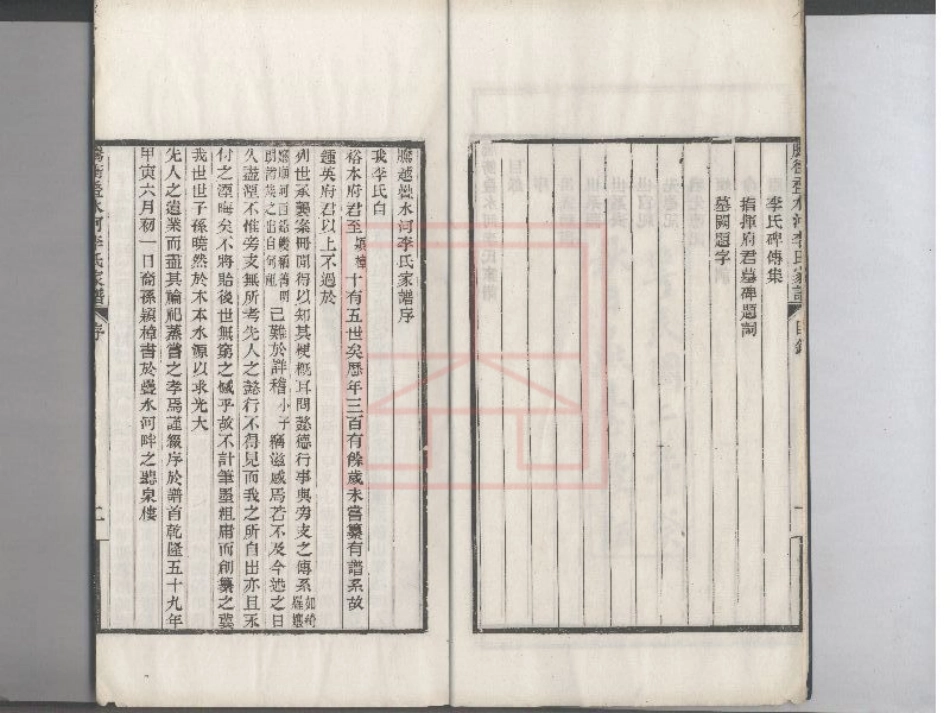 李氏碑傳集
指揮府君墓碑題詞
墓闕題字
騰越疊水河李氏家譜序
我李氏自
裕本府君至穎樟十有五世矣歷年三百有餘歲未嘗纂有譜系故
鍾英府君以上不過於
列世承襲案冊間得以知其梗概耳問懿德行事與旁支之傳系如
已難於詳稽小子竊滋慼焉若不及今述之日
久盡湮不惟旁支無所考先人之懿行不得見而我之所自出亦且永
付之湮晦矣不將貽後世無窮之憾乎故不計筆墨粗庸而創纂之冀
我世世子孫曉然於木本水源以求光大
先人之遺業而盡其禴祀蒸嘗之孝焉謹綴序於譜首乾隆五十九年
甲寅六月初一日裔孫穎樟書於疊水河畔之聽泉樓
騰衝疊水河李氏家譜 序